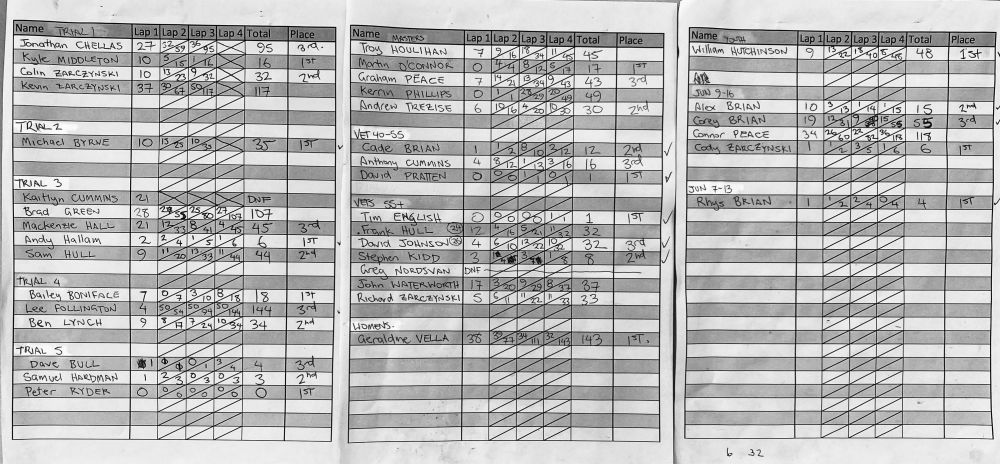 Name TRIAL 1 Lap 1 Lap 2 Lap 3 Lap 4 Total Place
Jonathan CHELLAS 27 32/59 36/95 95 3rd.
Kyle MIDDLETON 10 5/15 1/16 16 1st
Colin ZARCZYNSKI 10 13/23 9/32 32 2nd
Kevin ZARCZYNSKI 37 59/117 117
TRIAL 2
Michael BYRNE 10 13/23 35 1st
TRIAL 3
Kaitlyn CUMMINS 21 DNF
Brad GREEN 28 25/80 27/107 107
Mackenzie HALL 21 12/33 8/41 4/45 45 3rd
Andy Hallam 2 2/4 1/5 1/6 6 1st
Sam HULL 9 11/20 13/33 11/44 44 2nd
TRIAL 4
Bailey BONIFACE 7 0/7 3/10 8/18 18 1st
Lee FOLLINGTON 4 50/54 50/94 50/144 144 3rd
Ben LYNCH 9 8/17 7/24 10/34 34 2nd
TRIAL 5
Dave BULL 1 0/1 3/4 4 3rd
Samuel HARDMAN 1 2/3 0/3 0/3 3 2nd
Peter RYDER 0 0/0 0/0 0/0 0 1st
Name MASTERS Lap 1 Lap 2 Lap 3 Lap 4 Total Place
Troy HOULIHAN 7 9/16 18/34 11/45 45
Martin O'CONNOR 0 4/4 8/12 5/17 17 1st
Graham PEACE 7 14/21 13/34 9/43 43 3rd
Kerrin PHILLIPS 0 1/1 28/29 20/49 49
Andrew TREZISE 6 10/16 4/20 10/30 30 2nd
VET 40-55
Cade BRIAN 1 1/2 8/10 2/12 12 2nd
Anthony CUMMINS 4 8/12 1/13 3/16 16 3rd
David PRATTEN 0 0/0 1/1 0/1 1 1st
VETS 55+
Tim ENGLISH 0 0/0 0/0 1/1 1 1st
Frank HULL 12 4/16 5/21 11/32 32
David JOHNSON 4 6/10 12/22 10/32 32 3rd
Stephen KIDD 3 1/8 8 2nd
Greg NORDSVAN DNF
John WATERWORTH 17 3/20 9/29 8/37 37
Richard ZARCZYNSKI 5 6/11 11/22 11/33 33
WOMENS.
Geraldine VELLA 38 39/77 34/111 32/143 143 1ST.
Name YOUTH Lap 1 Lap 2 Lap 3 Lap 4 Total Place
William HUTCHINSON 9 13/22 18/40 8/48 48 1st
JUN 9-16
Alex BRIAN 10 3/13 1/14 1/15 15 2nd
Corey BRIAN 19 12/31 9 15/55 55 3rd
Connor PEACE 34 26/60 22/82 36/118 118
Cody ZARCZYNSKI 1 1/2 3/5 1/6 6 1st
JUN 7-13
Rhys BRIAN 1 1/2 2/4 0/4 4 1st
6 32